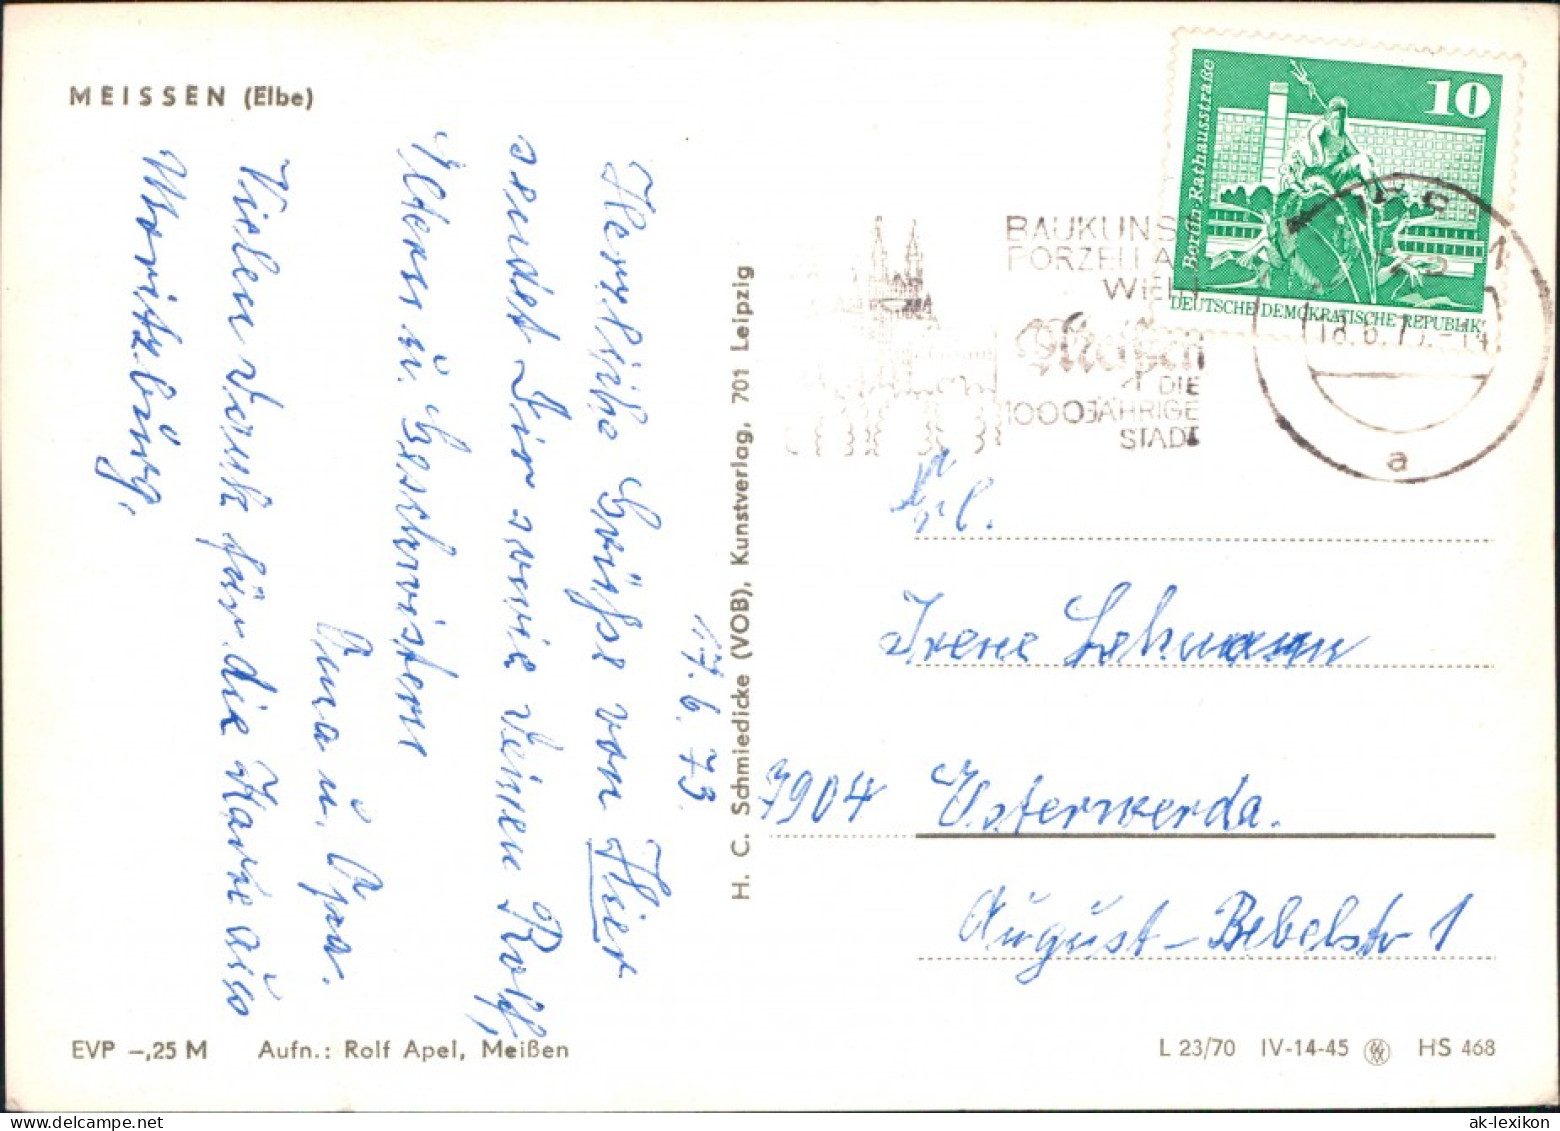 MEISSEN (Elbe)
17.6.73.
Herzliche Grüße von Hier
sendet Dir sowie Deinen Rolf,
Eltern u. Geschwistern
Oma u. Opa.
Vielen Dank für die Karte aus
Moritzburg.
EVP –,25 M Aufn.: Rolf Apel, Meißen
H. C. Schmiedicke (VOB), Kunstverlag, 701 Leipzig
BAUKUNS
PORZELLA
WEIN
Meißen
DIE
1000JÄHRIGE
STADT
10
Berlin-Rathausstraße
DEUTSCHE DEMOKRATISCHE REPUBLIK
18.6.73.-14
a
Frl.
Irene Lehmann
7904 Elsterwerda.
August-Bebelstr 1
L 23/70 IV-14-45 HS 468
ak-lexikon